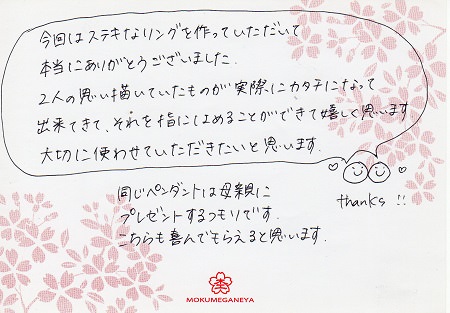 今回はステキなリングを作っていただいて
本当にありがとうございました.
2人の思い描いていたものが実際にカタチになって
出来てきて、それを指にはめることができて嬉しく思います
大切に使わせていただきたいと思います.
thanks !!
同じペンダントは母親に
プレゼントするつもりです.
こちらも喜んでもらえると思います.
MOKUMEGANEYA